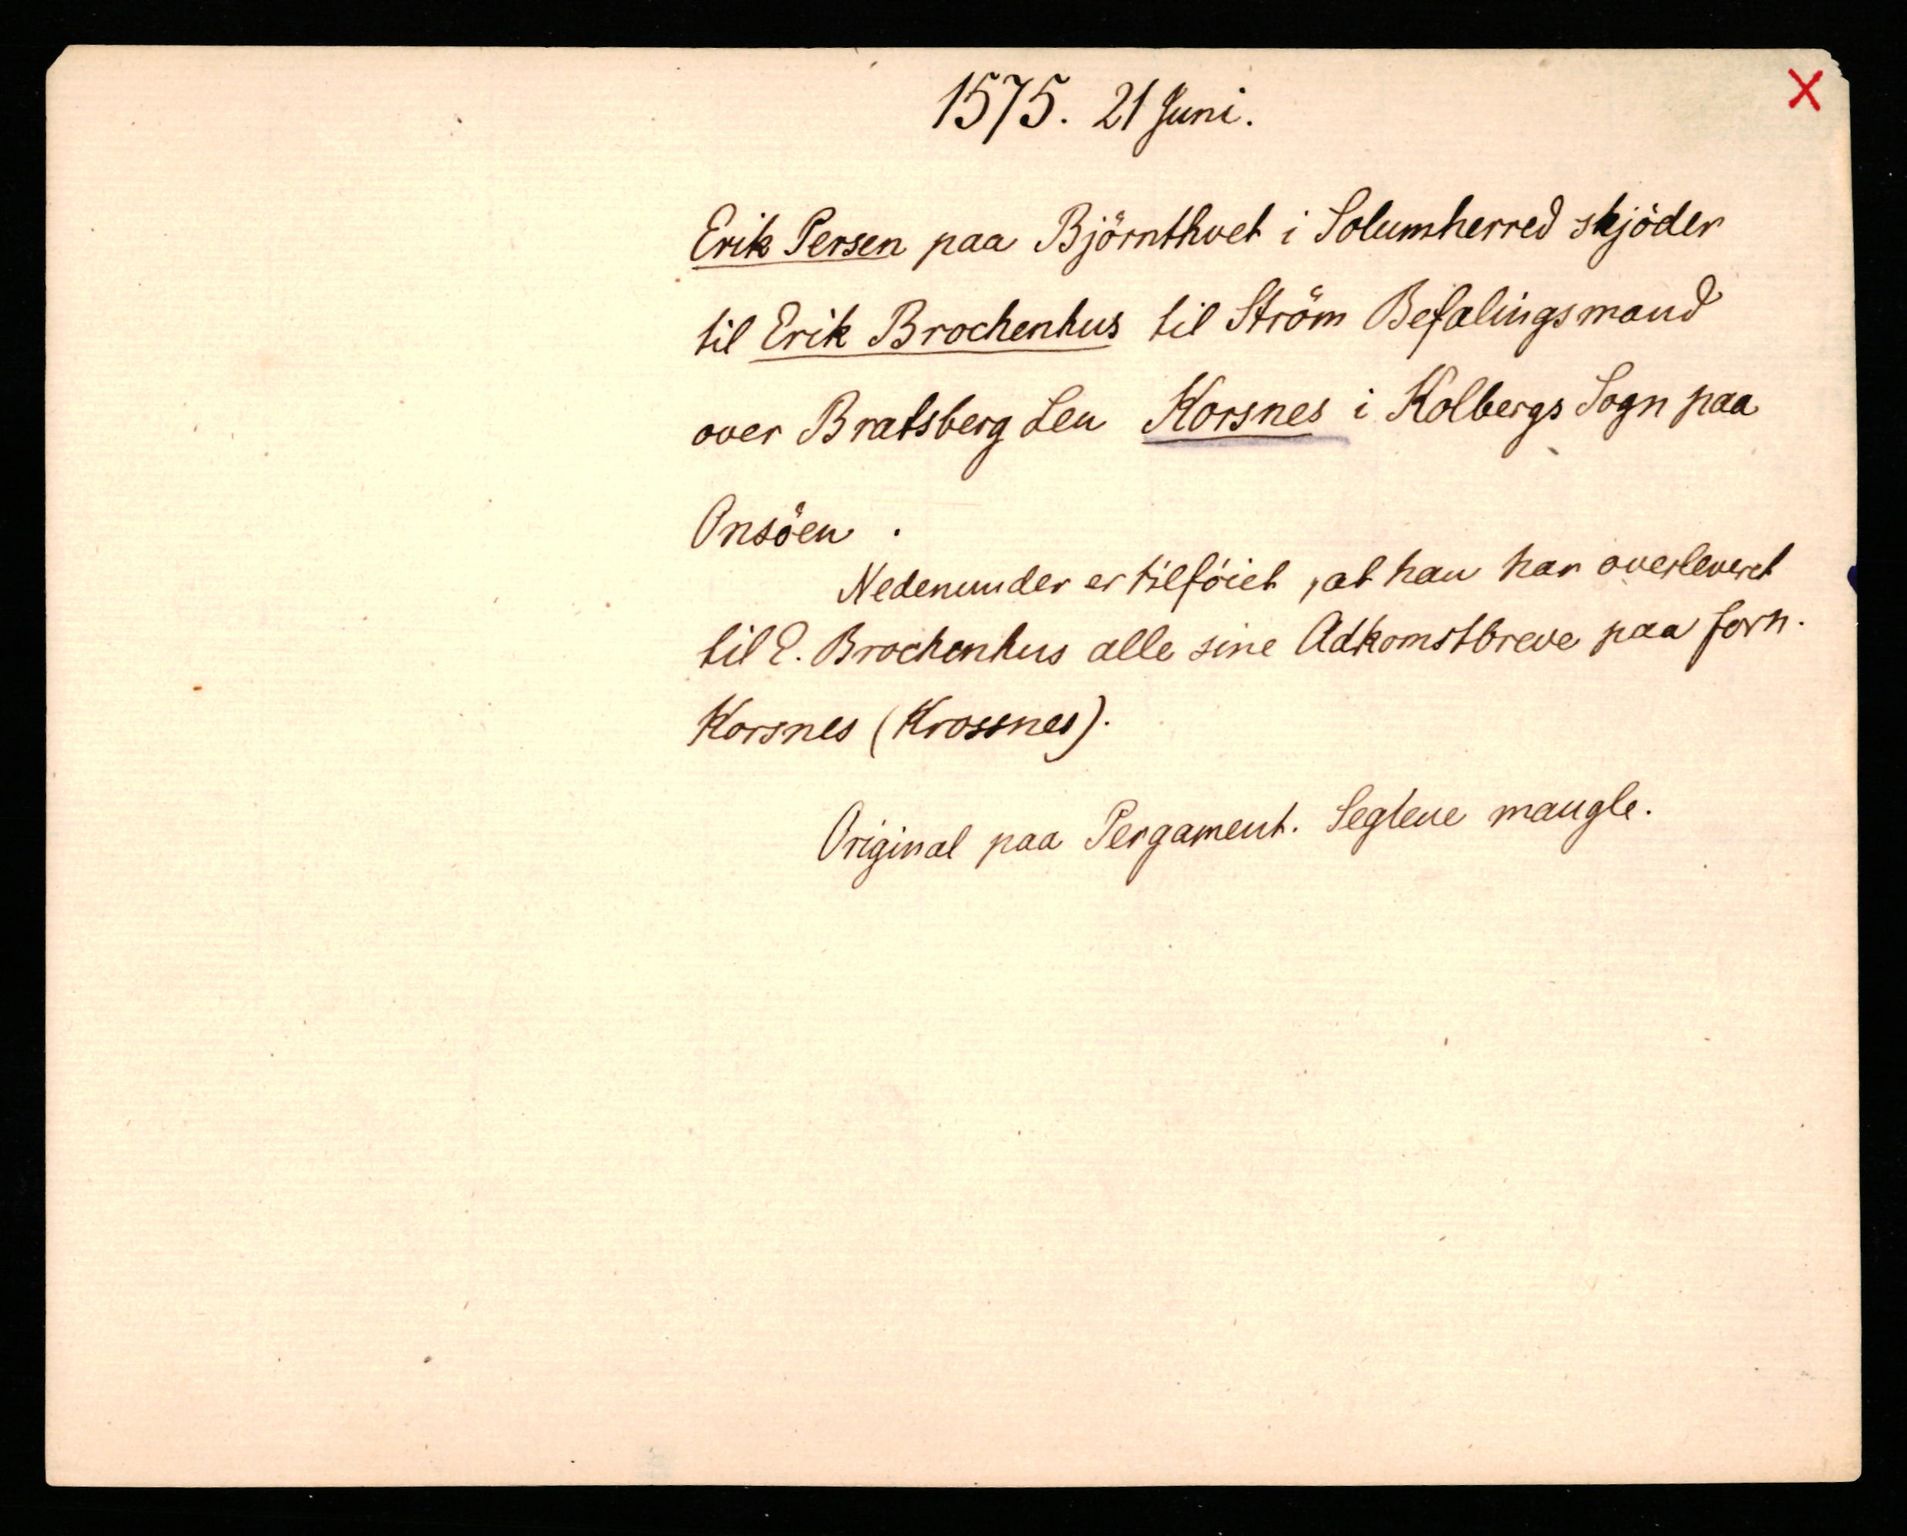 X
1575. 21 Juni.
Erik Persen paa Björnthvet i Solumherred skjöder
til Erik Brochenhus til Ström Befalingsmand
over Bratsberg Len Korsnes i Kolbergs Sogn paa
Onsöen .
Nedenunder er tilföiet , at han har overleveret
til E. Brochenhus alle sine Adkomstbreve paa forn.
Korsnes (Krossnes).
Original paa Pergament. Seglene mangle.